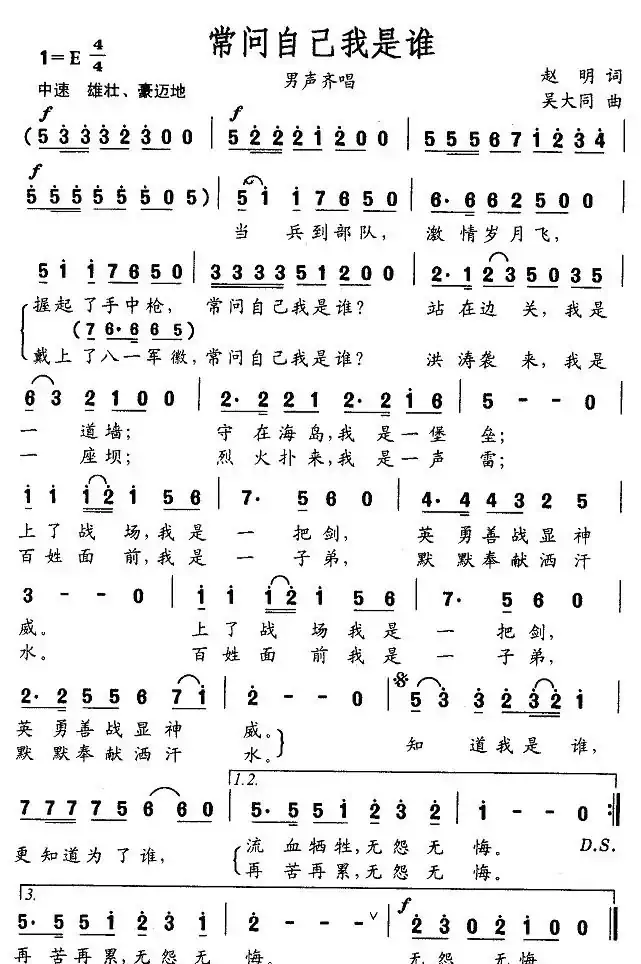 常问自己我是谁
1=E 4/4
男声齐唱
赵 明 词
中速 雄壮、豪迈地
吴大同 曲
f f
(5 3 3 3 2 3 0 0 | 5 2 2 2 1 2 0 0 | 5 5 5 6 7 1 2 3 4 |
f
5 5 5 5 5 5 0 5) | 5 1 1 7 6 5 0 | 6· 6 6 2 5 0 0 |
当 兵到部队, 激 情岁月飞,
5 1 1 7 6 5 0 | 3 3 3 3 5 1 2 0 0 | 2· 1 2 3 5 0 3 5 |
握起了手中枪, 常问自己我是谁? 站在边 关,我是
(7 6· 6 6 5)
戴上了八一军徽,常问自己我是谁? 洪涛袭 来,我是
6 3 2 1 0 0 | 2· 2 2 1 2· 2 1 6 | 5 - - 0 |
一 道墙; 守 在海岛,我 是一堡 垒;
一 座坝; 烈 火扑来,我 是一声 雷;
1 1 1 2 1 5 6 | 7· 5 6 0 | 4· 4 4 3 2 5 |
上了战 场,我是 一 把剑, 英 勇善战显神
百姓面 前,我是 一 子弟, 默 默奉献洒汗
3 - - 0 | 1 1 1 2 1 5 6 | 7· 5 6 0 |
威。 上了战 场我是 一 把剑,
水。 百姓面 前我是 一 子弟,
2· 2 5 5 6 7 1 | 2 - - 0 | 5 3 3 2 3 2 1 |
英 勇善战显神 威。
知 道我是 谁,
默 默奉献洒汗 水。
1.2.
7 7 7 7 5 6 6 0 | 5· 5 5 1 2 3 2 | 1 - - 0 :||
更知道为了谁, 流 血牺牲,无怨无 悔。 D.S.
再 苦再累,无怨无 悔。
3.
f
5· 5 5 1 2 3 1 | 2 - - - ∨ | 2 3 0 2 1 0 0 ||
再 苦再累,无怨无 悔。 无怨 无悔